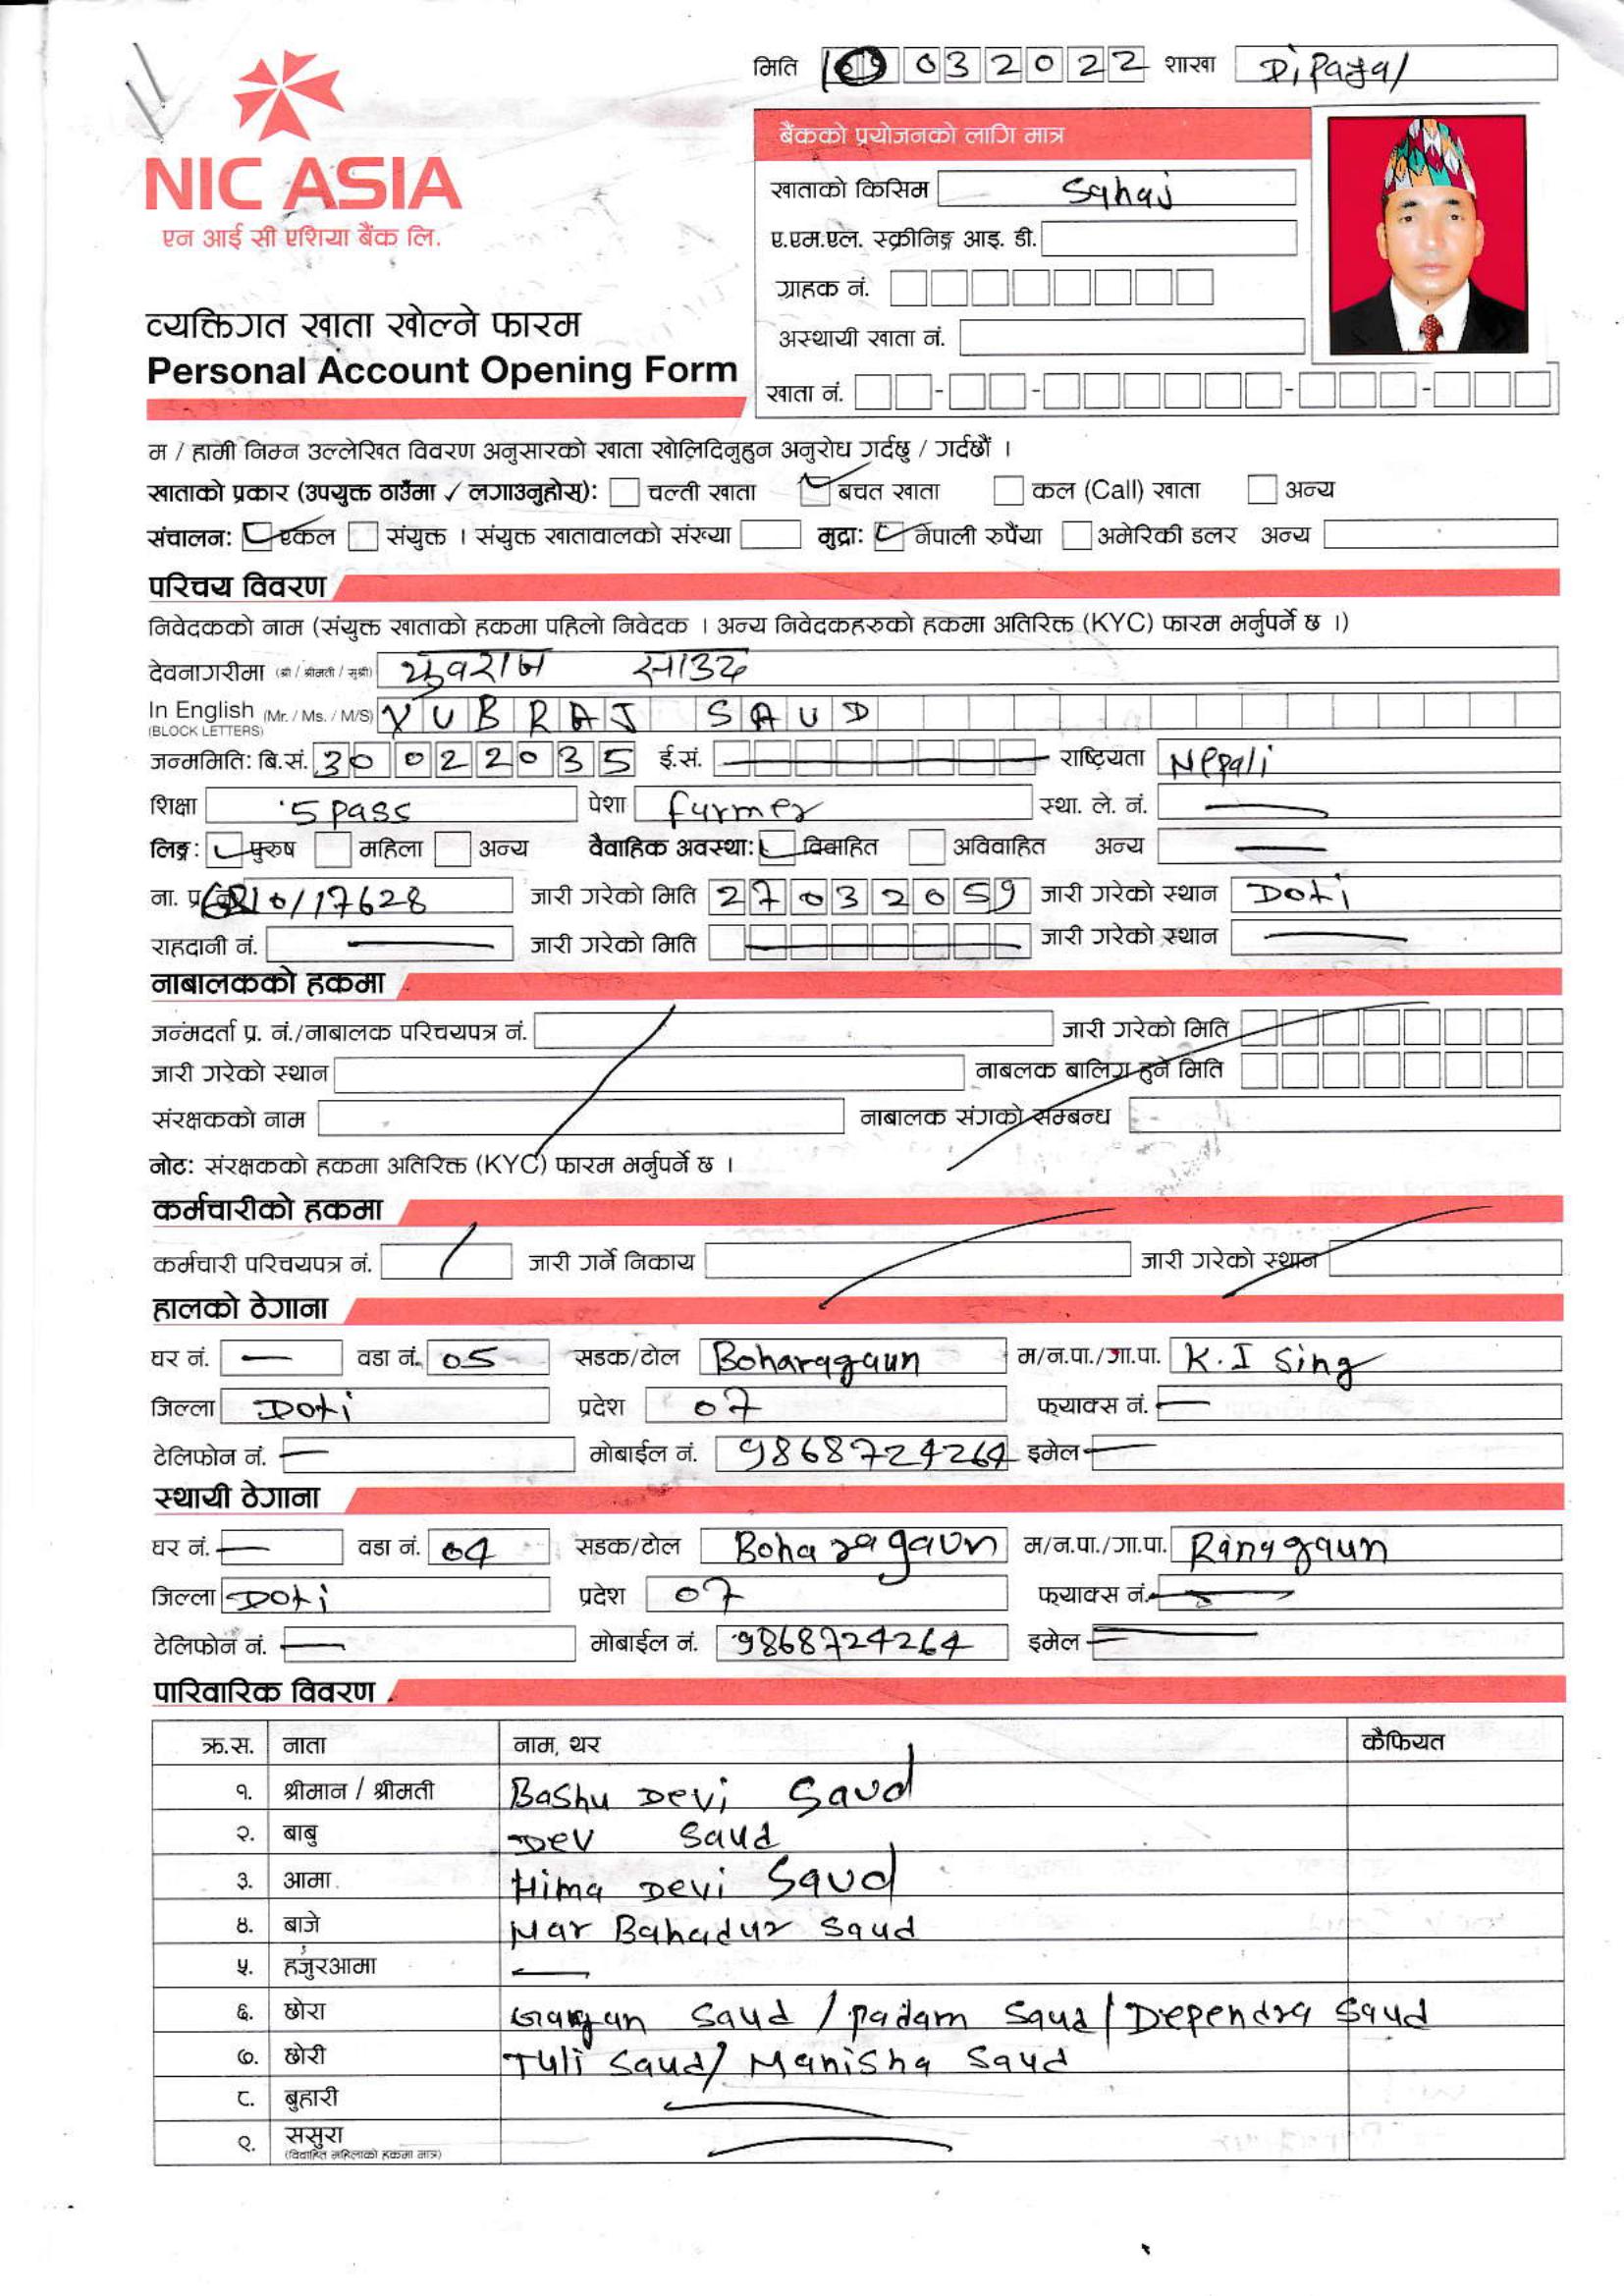 मिति 03 2022 शाखा Dipayal
NIC ASIA
एन आई सी एशिया बैंक लि.
बैंकको प्रयोजनको लागि मात्र
खाताको किसिम Sahaj
ए.एम.एल. स्क्रीनिङ्ग आइ. डी.
ग्राहक नं.
अस्थायी खाता नं.
व्यक्तिगत खाता खोल्ने फारम
Personal Account Opening Form
खाता नं. - - - -
म / हामी निम्न उल्लेखित विवरण अनुसारको खाता खोलिदिनुहुन अनुरोध गर्दछु / गर्दछौं ।
खाताको प्रकार (उपयुक्त ठाउँमा ✓ लगाउनुहोस्): चल्ती खाता ✓ बचत खाता कल (Call) खाता अन्य
संचालन: ✓ एकल संयुक्त । संयुक्त खातावालको संख्या मुद्रा: ✓ नेपाली रुपैंया अमेरिकी डलर अन्य
परिचय विवरण
निवेदकको नाम (संयुक्त खाताको हकमा पहिलो निवेदक । अन्य निवेदकहरुको हकमा अतिरिक्त (KYC) फारम भर्नुपर्ने छ ।)
देवनागरीमा (श्री / श्रीमती / सुश्री) युवराज साउद
In English (Mr. / Ms. / M/S) YUBRAJ SAUD
(BLOCK LETTERS)
जन्ममिति: बि.सं. 30022035 ई.सं. राष्ट्रियता Nepali
शिक्षा 5 pass पेशा farmer स्था. ले. नं.
लिङ्ग: ✓ पुरुष महिला अन्य वैवाहिक अवस्था: ✓ विवाहित अविवाहित अन्य
ना. प्र. /17628 जारी गरेको मिति 27032059 जारी गरेको स्थान Doti
राहदानी नं. जारी गरेको मिति जारी गरेको स्थान
नाबालकको हकमा
जन्मदर्ता प्र. नं./नाबालक परिचयपत्र नं. जारी गरेको मिति
जारी गरेको स्थान नाबलक बालिग हुने मिति
संरक्षकको नाम नाबालक संगको सम्बन्ध
नोट: संरक्षकको हकमा अतिरिक्त (KYC) फारम भर्नुपर्ने छ ।
कर्मचारीको हकमा
कर्मचारी परिचयपत्र नं. जारी गर्ने निकाय जारी गरेको स्थान
हालको ठेगाना
घर नं. — वडा नं. 05 सडक/टोल Boharagaun म/न.पा./गा.पा. K.I Sing
जिल्ला Doti प्रदेश 07 फ्याक्स नं. —
टेलिफोन नं. — मोबाईल नं. 9868724264 इमेल —
स्थायी ठेगाना
घर नं. — वडा नं. 04 सडक/टोल Boharagaun म/न.पा./गा.पा. Ranagaun
जिल्ला Doti प्रदेश 07 फ्याक्स नं. —
टेलिफोन नं. — मोबाईल नं. 9868724264 इमेल —
पारिवारिक विवरण
क्र.स. नाता नाम, थर कैफियत
१. श्रीमान / श्रीमती Bashu Devi Saud
२. बाबु Dev Saud
३. आमा Hima Devi Saud
४. बाजे Nar Bahadur Saud
५. हजुरआमा —
६. छोरा Gagan Saud / Padam Saud / Dependra Saud
७. छोरी Tuli Saud / Manisha Saud
८. बुहारी —
९. ससुरा —
(विवाहित महिलाको हकमा मात्र)